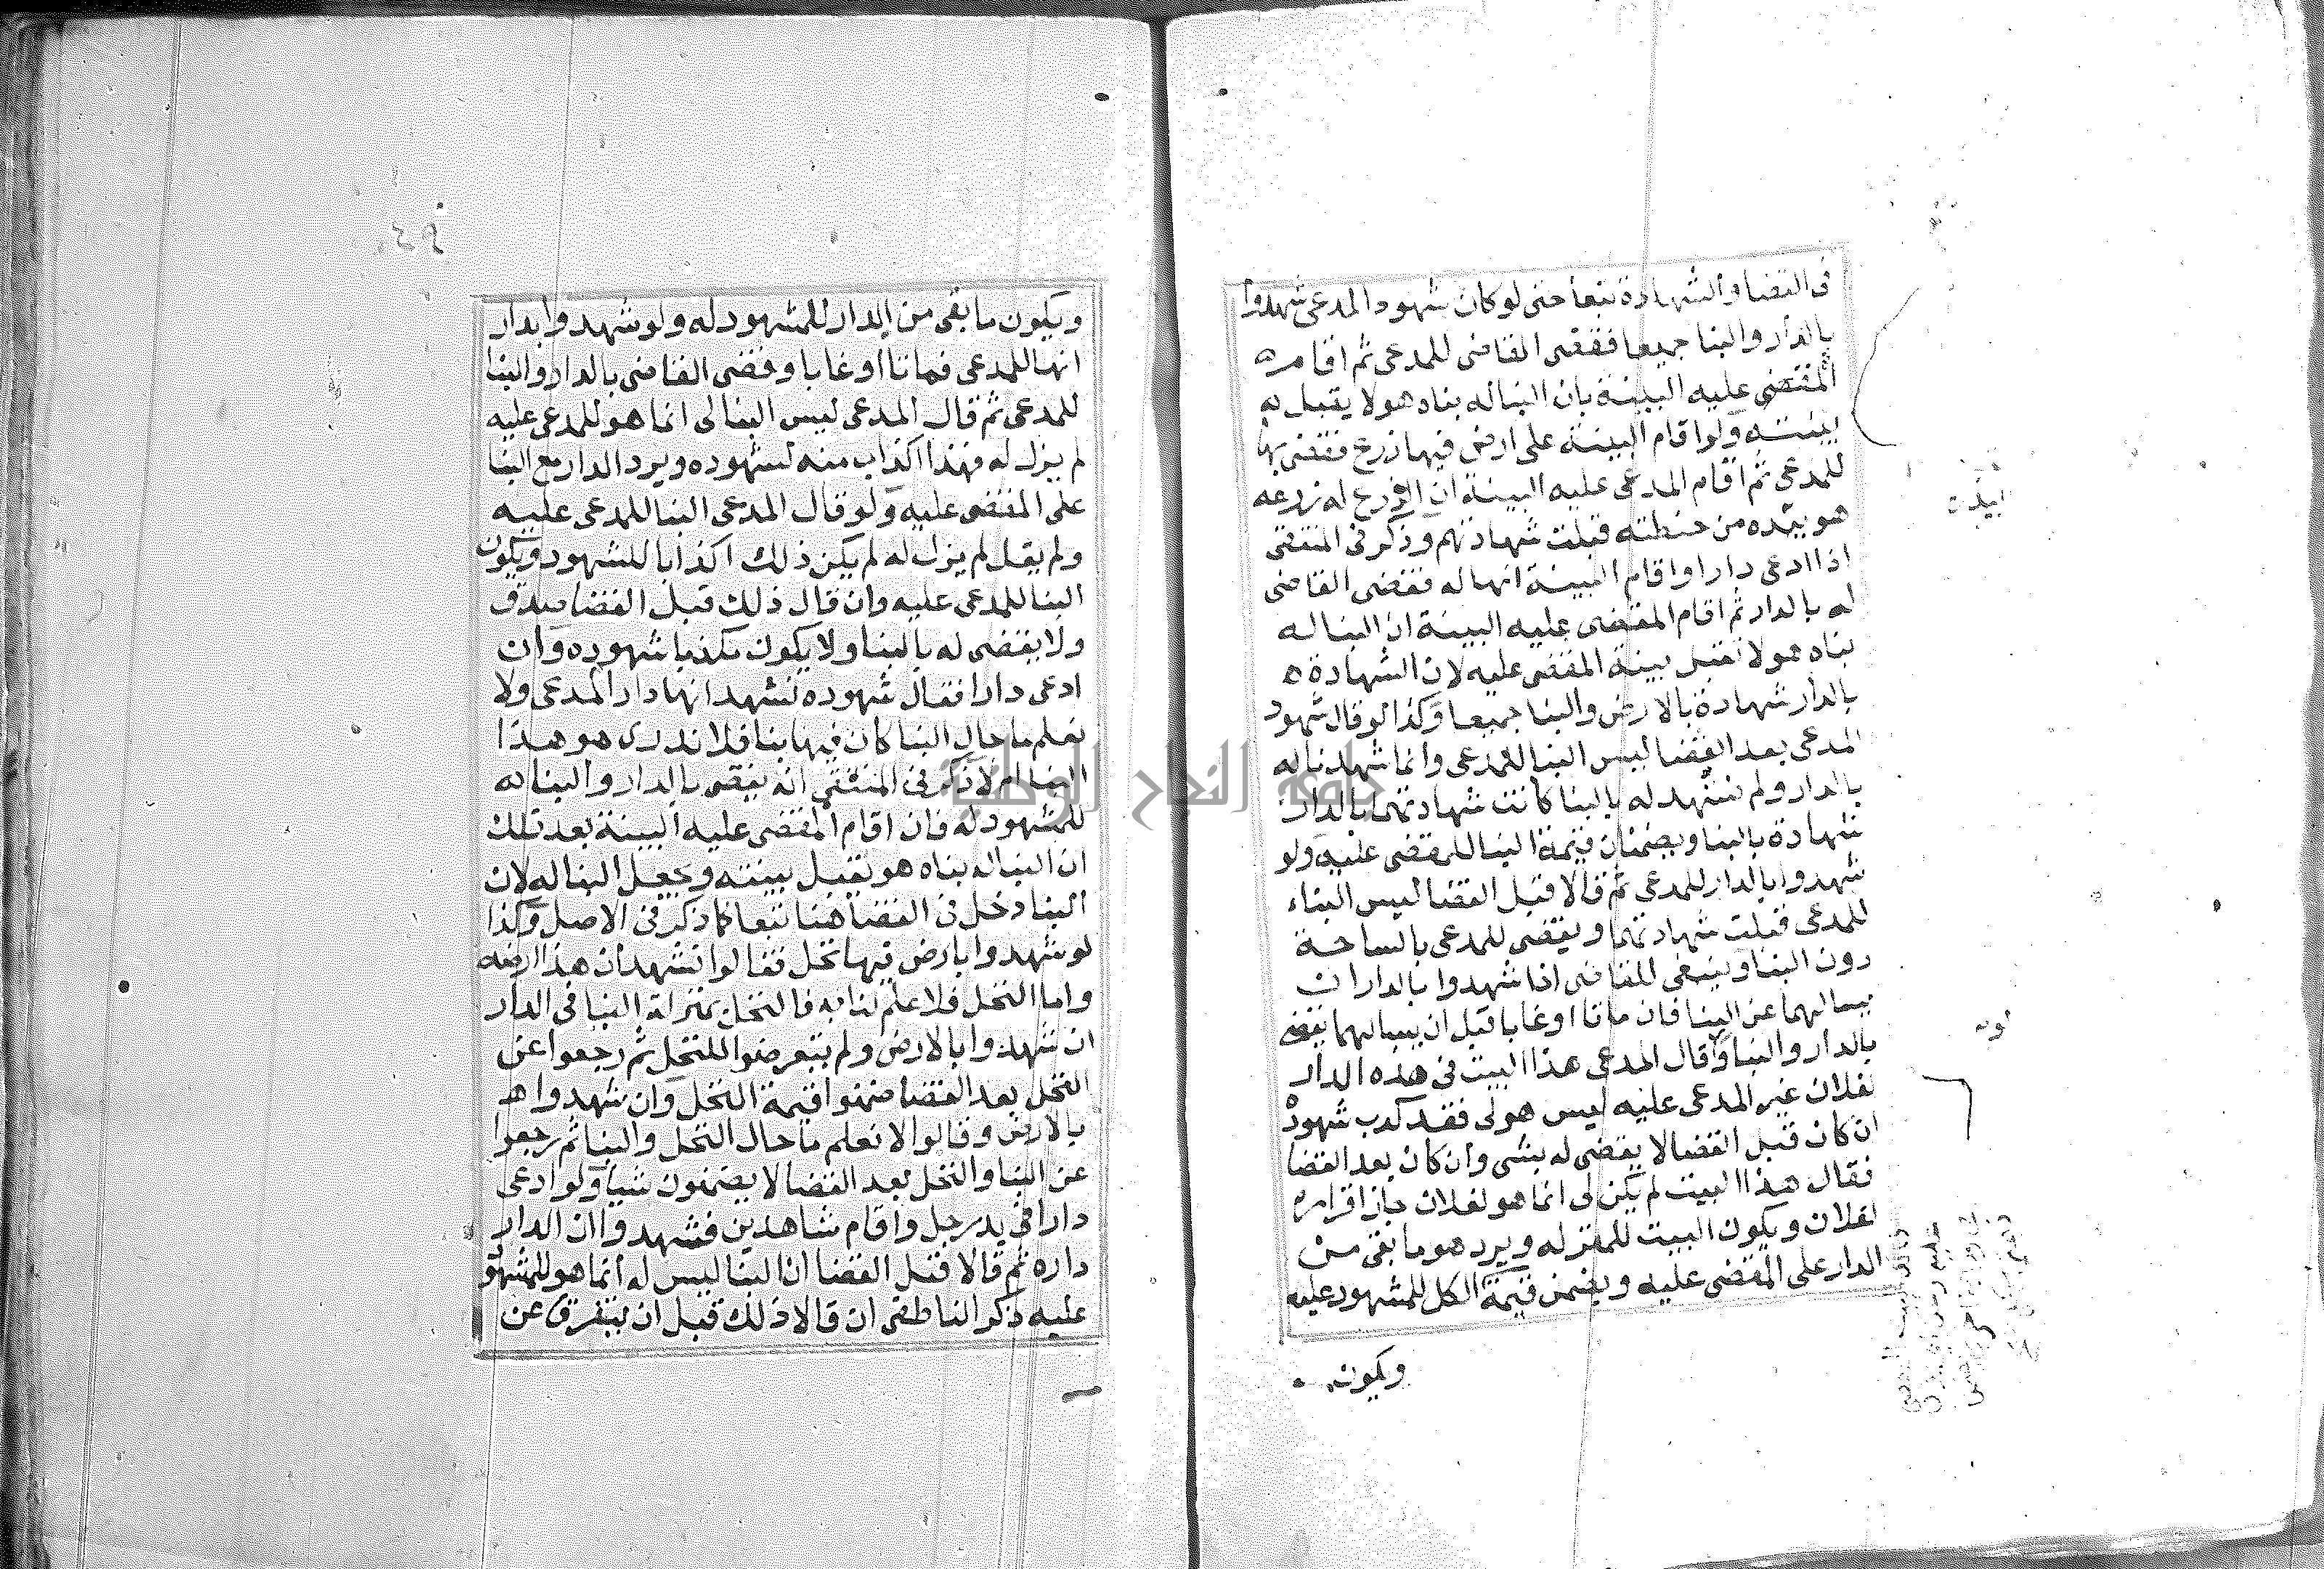 فى القضا والشهادة تبعا حتى لو كان شهود المدعى شهدوا
بالدار والبنا جميعا فقضى القاضى للمدعى ثم اقام
المقضى عليه البينة بان البنا له بناه هو لا يقبل
بينته ولو اقام البينة على ارض فيها زرع فقضى بها
للمدعى ثم اقام المدعى عليه البينة ان الزرع له زرعه
هو بيده من حنطته قبلت شهادتهم وذكر فى المنتقى
اذا ادعى دارا واقام البينة انها له فقضى القاضى
له بالدار ثم اقام المقضى عليه البينة ان البنا له
بناه هو لا تقبل بينة المقضى عليه لان الشهادة
بالدار شهادة بالارض والبنا جميعا وكذا لو قال شهود
المدعى بعد القضا ليس البنا للمدعى وانما شهدنا له
بالدار ولم نشهد له بالبنا كانت شهادتهما بالدار
شهادة بالبنا ويضمنان قيمة البنا للمقضى عليه ولو
شهدوا بالدار للمدعى ثم قالا قبل القضا ليس البناء
للمدعى قبلت شهادتهما ويقضى للمدعى بالساحة
دون البنا وينبغى للقاضى اذا شهدوا بالدار ان
يسالهما عن البنا فان ماتا او غابا قبل ان يسالهما يقضى
بالدار والبنا وقال المدعى هذا البيت فى هذه الدار
لفلان غير المدعى عليه ليس هو لى فقد كذب شهوده
ان كان قبل القضا لا يقضى له بشى وان كان بعد القضا
فقال هذا البيت لم يكن لى انما هو لفلان جاز اقراره
لفلان ويكون البيت للمقر له ويرد هو ما بقى من
الدار على المقضى عليه ويضمن قيمة الكل للمشهود عليه
ويكون
ويكون ما بقى من الدار للمشهود له ولو شهدوا بدار
انها للمدعى فماتا او غابا وقضى القاضى بالدار والبنا
للمدعى ثم قال المدعى ليس البنا لى انما هو للمدعى عليه
لم يزل له فهذا اكذاب منه لشهوده ويرد الدار مع البنا
على المقضى عليه ولو قال المدعى البنا للمدعى عليه
ولم يقل لم يزل له لم يكن ذلك اكذابا للشهود ويكون
البنا للمدعى عليه وان قال ذلك قبل القضا صدق
ولا يقضى له بالبنا ولا يكون مكذبا شهوده وان
ادعى دارا فقال شهوده نشهد انها دار المدعى ولا
نعلم ما حال البنا كان فيها بنا فلا ندرى هو هذا
البنا ام لا ذكر فى المنتقى انه يقضى بالدار والبنا له
للمشهود له فان اقام المقضى عليه البينة بعد تلك
ان البنا له بناه هو تقبل بينته ويجعل البنا له لان
البنا دخل فى القضا هنا تبعا كما ذكر فى الاصل وكذا
لو شهدوا بارض فيها نخل فقالوا نشهد ان هذا ارضه
واما النخل فلا علم لنا به فالنخل بمنزلة البنا فى الدار
ان شهدوا بالارض ولم يتعرضوا للنخل ثم رجعوا عن
النخل بعد القضا ضمنوا قيمة النخل وان شهدوا
بالارض وقالوا لا نعلم ما حال النخل والبنا ثم رجعوا
عن البنا والنخل بعد القضا لا يضمنون شيا ولو ادعى
دارا فى يد رجل واقام شاهدين فشهدوا ان الدار
داره ثم قالا قبل القضا ان البنا ليس له انما هو للمشهود
عليه ذكر الناطفى ان قالا ذلك قبل ان يتفرق عن
جامعة النجاح الوطنية